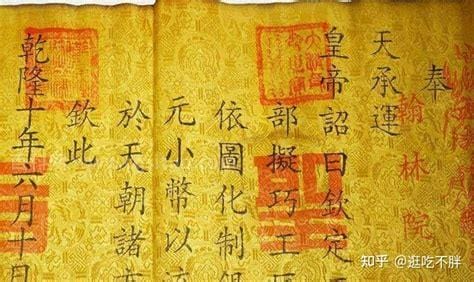 奉
天承運
皇帝詔曰欽定
部擬巧工
依圖化制
元小幣以
於天朝諸
欽此
乾隆十年六月十
翰林院
知乎 @逛吃不胖